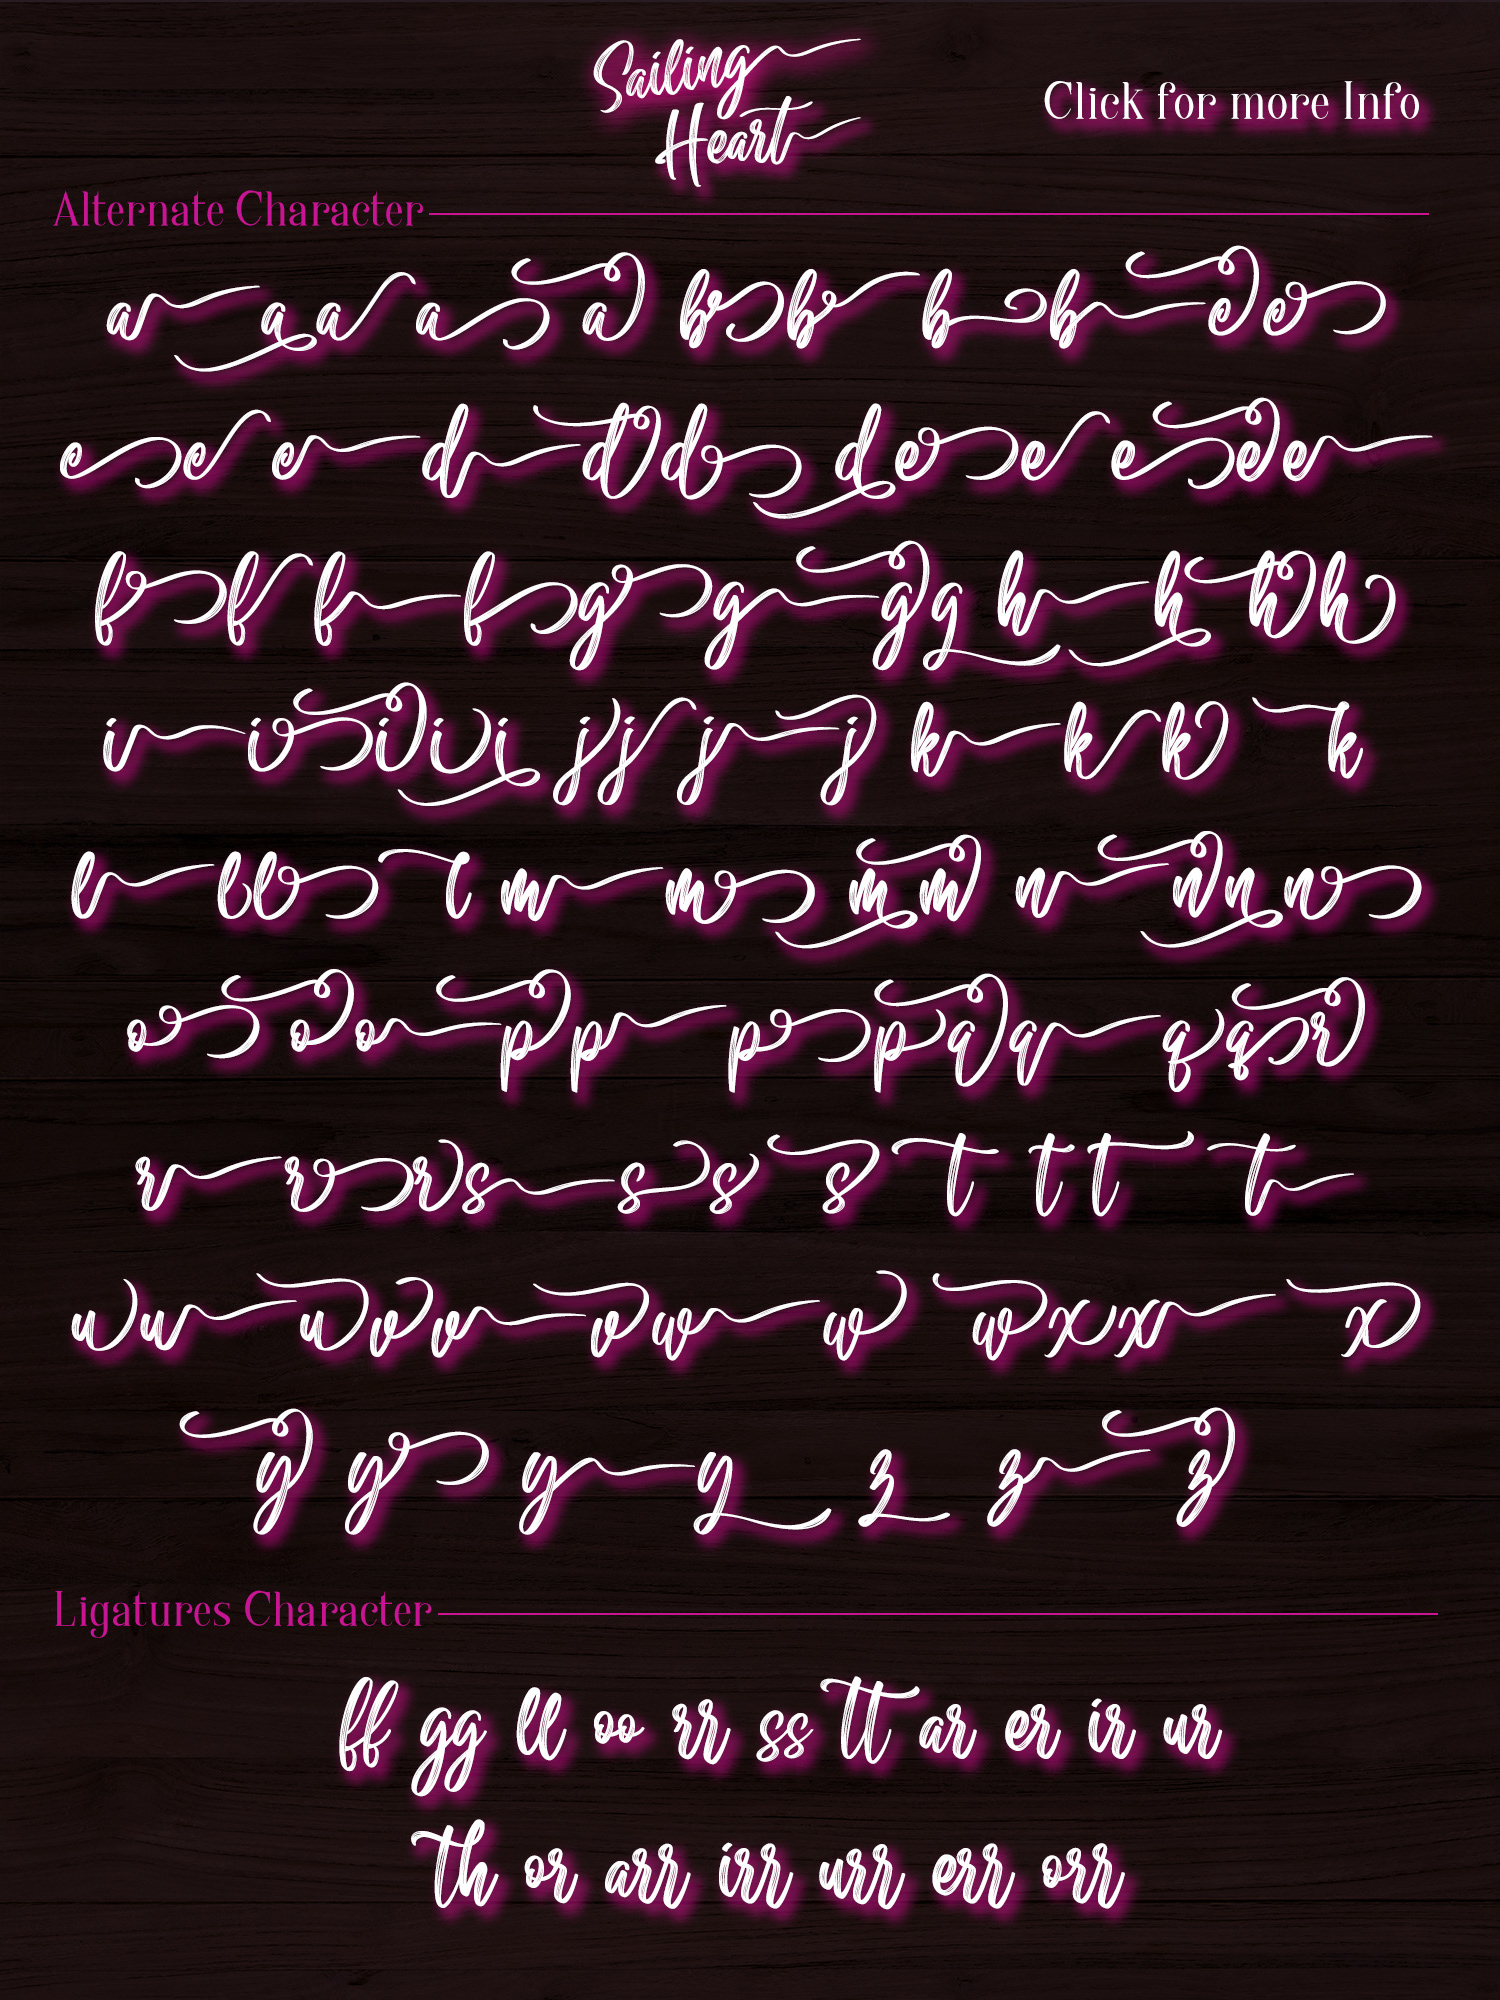 Sailing
Heart
Click for more Info
Alternate Character
a a a a a b b b b e e
e e e d d d d e e e e e
f f f f g g g g h h h h
i i i i i j j j j k k k k
l l l t m m m m n n n n
o o o p p p p q q q q r
r r r s s s s t t t t
u u u v v v w w w x x x
y y y y z z z
Ligatures Character
ff gg ll oo rr ss tt ar er ir ur
th or arr irr urr err orr